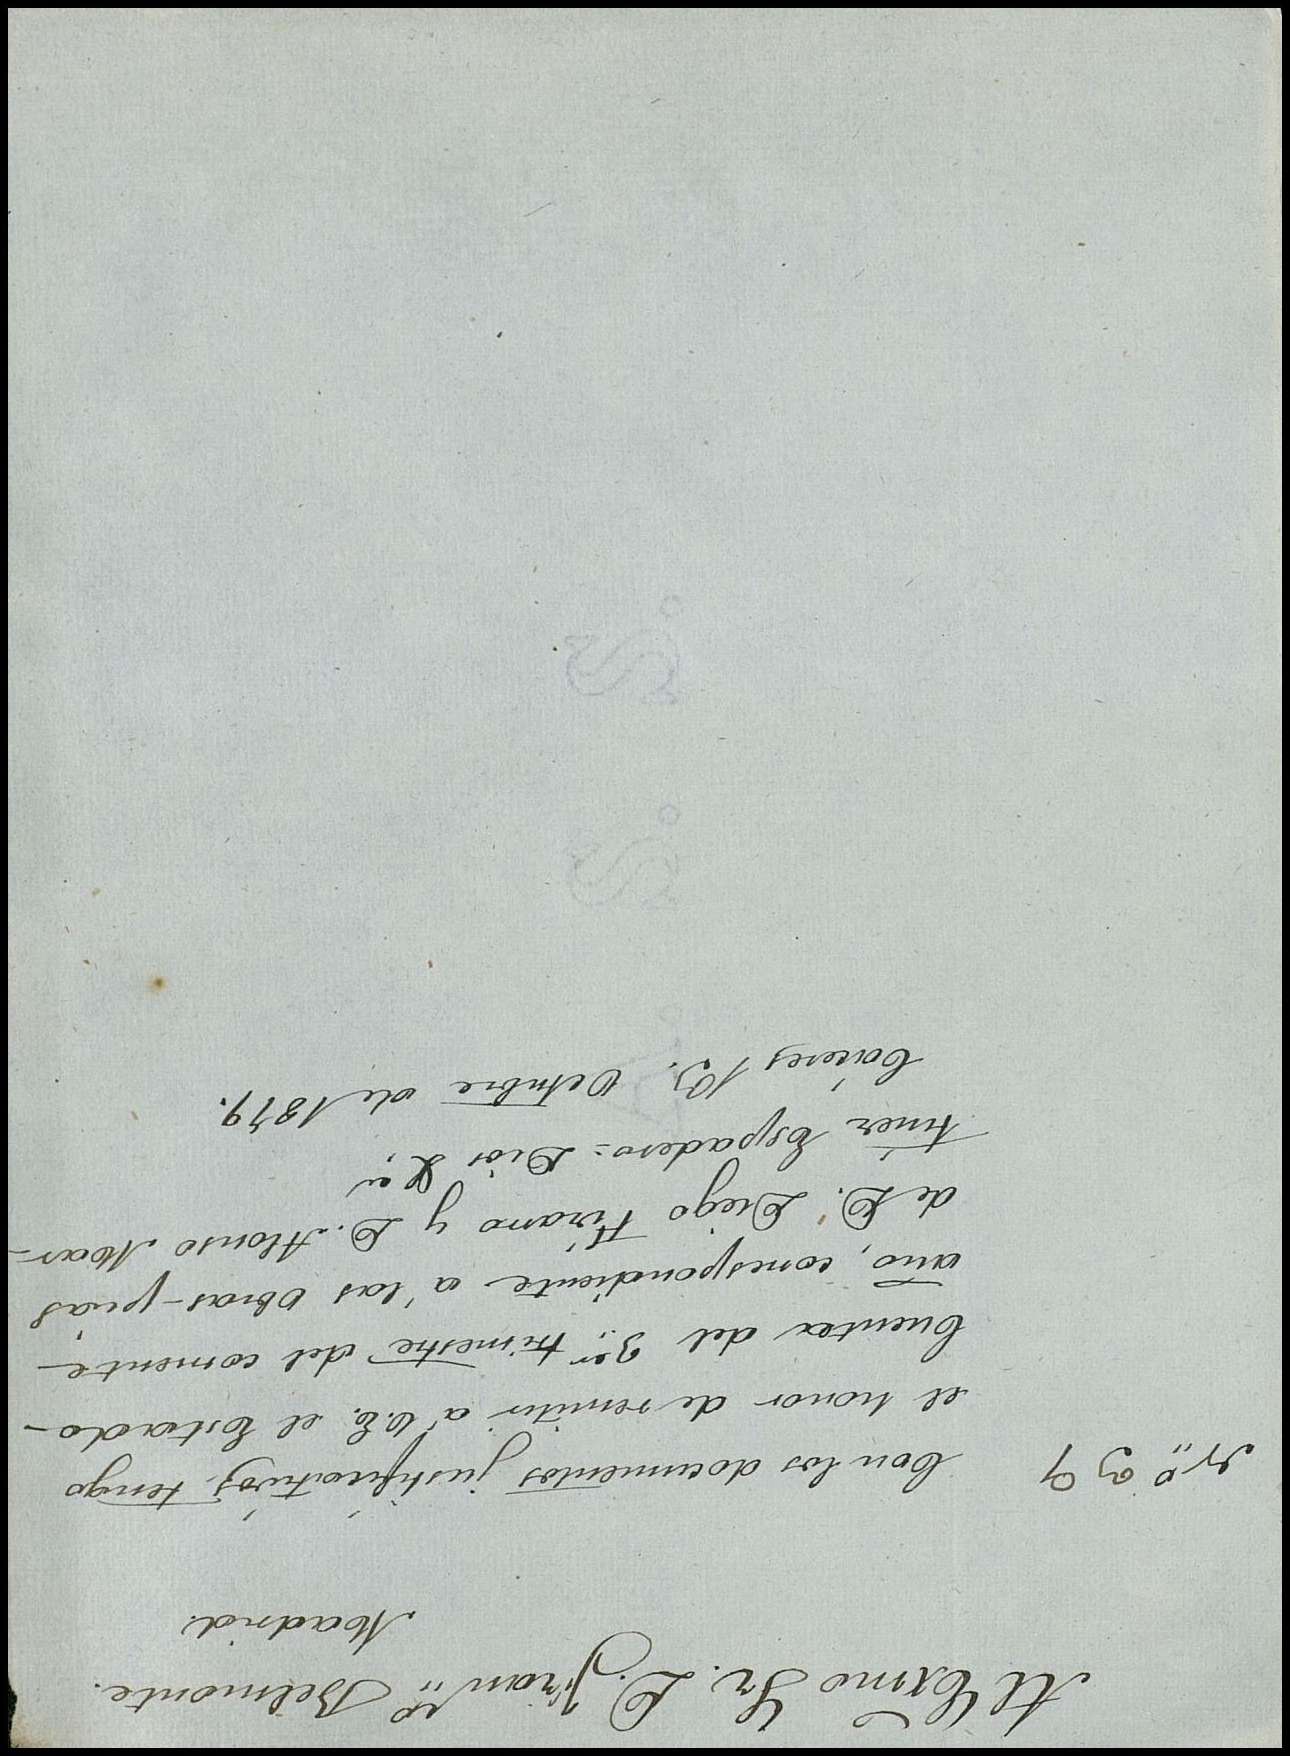 Al Exmo Sr. D. Fran.co Belmonte.
Madrid.
N.º 39
Con los documentos justificativos, tengo
el honor de remitir á V.E. el Estado-
Cuenta del 3.er trimestre del corriente
año, correspondiente a las Obras-pias
de D. Diego Pizarro y D. Alonso Mar-
tinez Espadero = Dios &.a
Cáceres 13. Octubre de 1879.